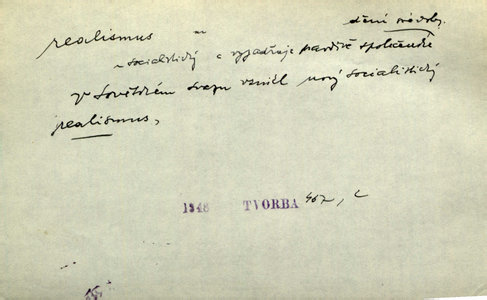 realismus
dění své doby.
~ socialistický a vyjadřuje pravdivě společenské
V Sovětském svazu vznikl nový socialistický
realismus,
1948 TVORBA 467, L